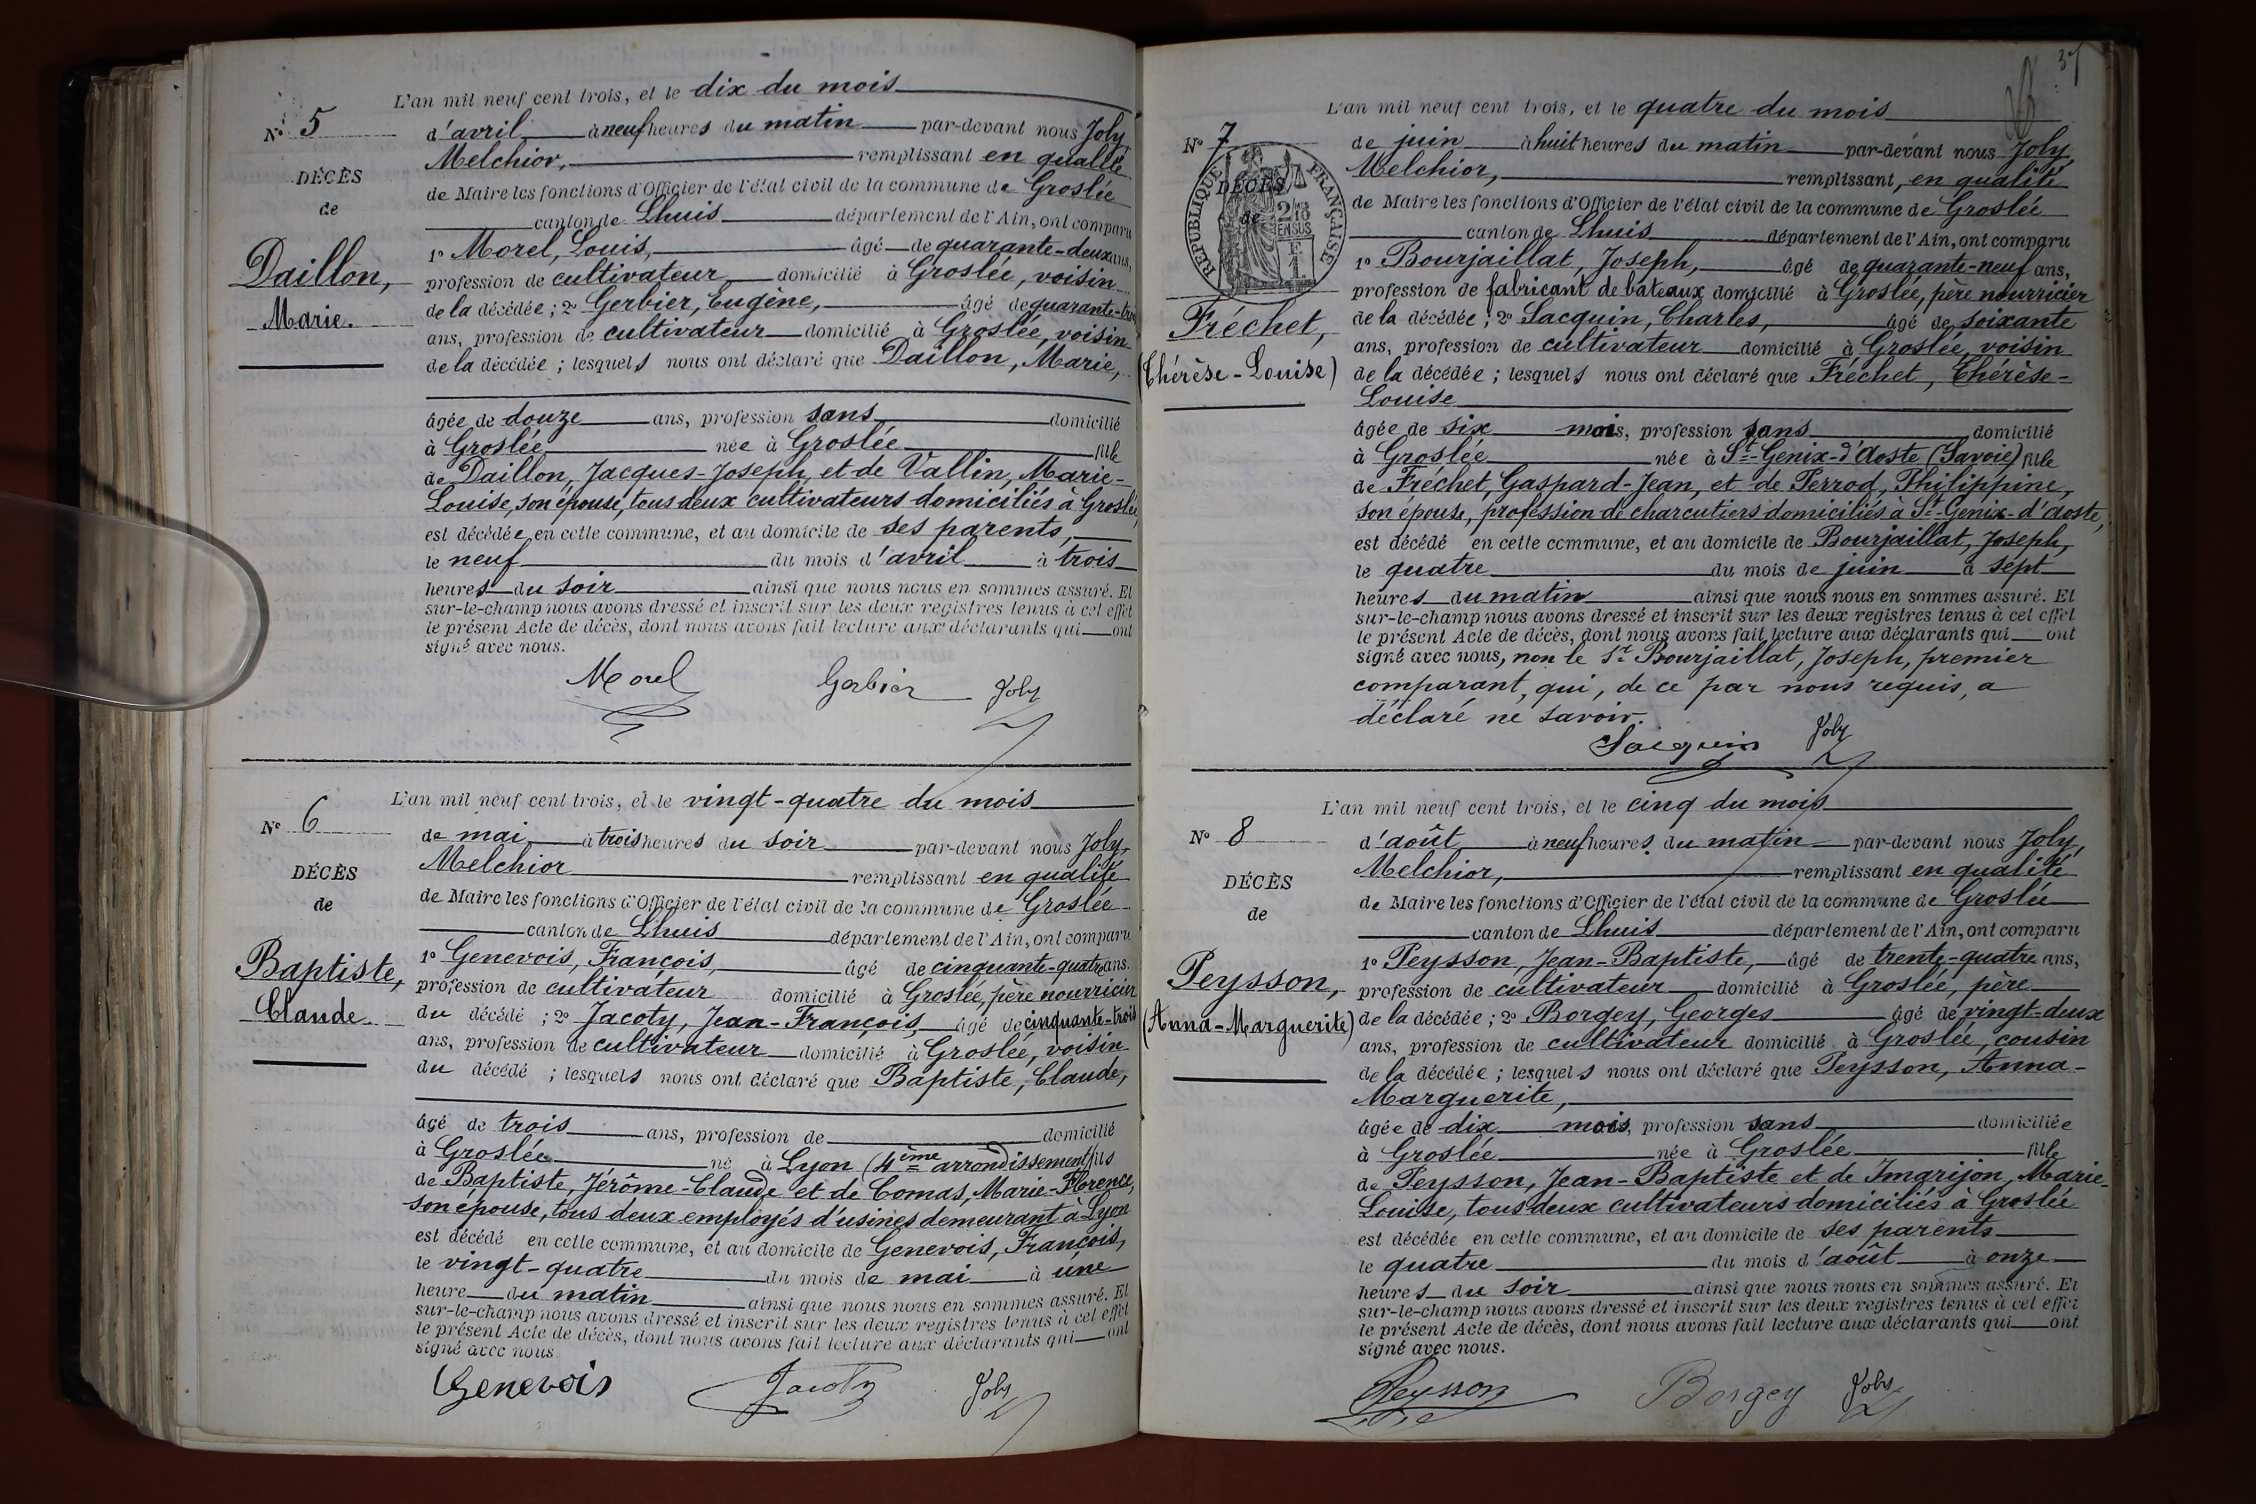 L'an mil neuf cent trois, et le dix du mois
N° 5
d'avril à neuf heures du matin par-devant nous Joly,
Melchior, remplissant en qualité
DÉCÈS
de Maire les fonctions d'Officier de l'état civil de la commune de Groslée
de
canton de Lhuis département de l'Ain, ont comparu
1° Morel, Louis, âgé de quarante-deux ans,
Daillon,
profession de cultivateur domicilié à Groslée, voisin
de la décédée ; 2° Gerbier, Eugène, âgé de quarante-trois
Marie.
ans, profession de cultivateur domicilié à Groslée, voisin
de la décédée ; lesquels nous ont déclaré que Daillon, Marie,
âgée de douze ans, profession sans domicilié
à Groslée née à Groslée fille
de Daillon, Jacques-Joseph, et de Vallin, Marie-
Louise, son épouse, tous deux cultivateurs domiciliés à Groslée,
est décédée en cette commune, et au domicile de ses parents,
le neuf du mois d'avril à trois
heures du soir ainsi que nous nous en sommes assuré. Et
sur-le-champ nous avons dressé et inscrit sur les deux registres tenus à cet effet
le présent Acte de décès, dont nous avons fait lecture aux déclarants qui ont
signé avec nous.
Morel Gerbier Joly
L'an mil neuf cent trois, et le vingt-quatre du mois
N° 6
de mai à trois heures du soir par-devant nous Joly,
Melchior remplissant en qualité
DÉCÈS
de Maire les fonctions d'Officier de l'état civil de la commune de Groslée
de
canton de Lhuis département de l'Ain, ont comparu
1° Genevois, François, âgé de cinquante-quatre ans.
Baptiste,
profession de cultivateur domicilié à Groslée, père nourricier
Claude.
du décédé ; 2° Jacoty, Jean-François, âgé de cinquante-trois
ans, profession de cultivateur domicilié à Groslée, voisin
du décédé ; lesquels nous ont déclaré que Baptiste, Claude,
âgé de trois ans, profession de domicilié
à Groslée né à Lyon (4ème arrondissement) fils
de Baptiste, Jérôme-Claude et de Comas, Marie-Florence,
son épouse, tous deux employés d'usines demeurant à Lyon
est décédé en cette commune, et au domicile de Genevois, François,
le vingt-quatre du mois de mai à une
heure du matin ainsi que nous nous en sommes assuré. Et
sur-le-champ nous avons dressé et inscrit sur les deux registres tenus à cet effet
le présent Acte de décès, dont nous avons fait lecture aux déclarants qui ont
signé avec nous.
Genevois Jacoty Joly
37
L'an mil neuf cent trois, et le quatre du mois
N° 7
de juin à huit heures du matin par-devant nous Joly,
Melchior, remplissant, en qualité
DÉCÈS
de
RÉPUBLIQUE FRANÇAISE
2/10 EN SUS
de Maire les fonctions d'Officier de l'état civil de la commune de Groslée
canton de Lhuis département de l'Ain, ont comparu
1° Bourjaillat, Joseph, âgé de quarante-neuf ans,
profession de fabricant de bateaux domicilié à Groslée, père nourricier
Fréchet,
de la décédée ; 2° Sacquin, Charles, âgé de soixante
ans, profession de cultivateur domicilié à Groslée, voisin
(Thérèse-Louise)
de la décédée ; lesquels nous ont déclaré que Fréchet, Thérèse-
Louise
âgée de six mois, profession sans domicilié
à Groslée née à St-Genix-d'Aoste (Savoie) fille
de Fréchet, Gaspard-Jean, et de Perrod, Philippine,
son épouse, profession de charcutiers domiciliés à St-Genix-d'Aoste,
est décédé en cette commune, et au domicile de Bourjaillat, Joseph,
le quatre du mois de juin à sept
heures du matin ainsi que nous nous en sommes assuré. Et
sur-le-champ nous avons dressé et inscrit sur les deux registres tenus à cet effet
le présent Acte de décès, dont nous avons fait lecture aux déclarants qui ont
signé avec nous, non le Sr Bourjaillat, Joseph, premier
comparant, qui, de ce par nous requis, a
déclaré ne savoir.
Sacquin Joly
L'an mil neuf cent trois, et le cinq du mois
N° 8
d'août à neuf heures du matin par-devant nous Joly,
Melchior, remplissant en qualité
DÉCÈS
de Maire les fonctions d'Officier de l'état civil de la commune de Groslée
de
canton de Lhuis département de l'Ain, ont comparu
1° Peysson, Jean-Baptiste, âgé de trente-quatre ans,
Peysson,
profession de cultivateur domicilié à Groslée, père
(Anna-Marguerite)
de la décédée ; 2° Borgey, Georges âgé de vingt-deux
ans, profession de cultivateur domicilié à Groslée, cousin
de la décédée ; lesquels nous ont déclaré que Peysson, Anna-
Marguerite,
âgée de dix mois, profession sans domiciliée
à Groslée née à Groslée fille
de Peysson, Jean-Baptiste et de Imarijon, Marie-
Louise, tous deux cultivateurs domiciliés à Groslée
est décédée en cette commune, et au domicile de ses parents
le quatre du mois d'août à onze
heures du soir ainsi que nous nous en sommes assuré. Et
sur-le-champ nous avons dressé et inscrit sur les deux registres tenus à cet effet
le présent Acte de décès, dont nous avons fait lecture aux déclarants qui ont
signé avec nous.
Peysson Borgey Joly